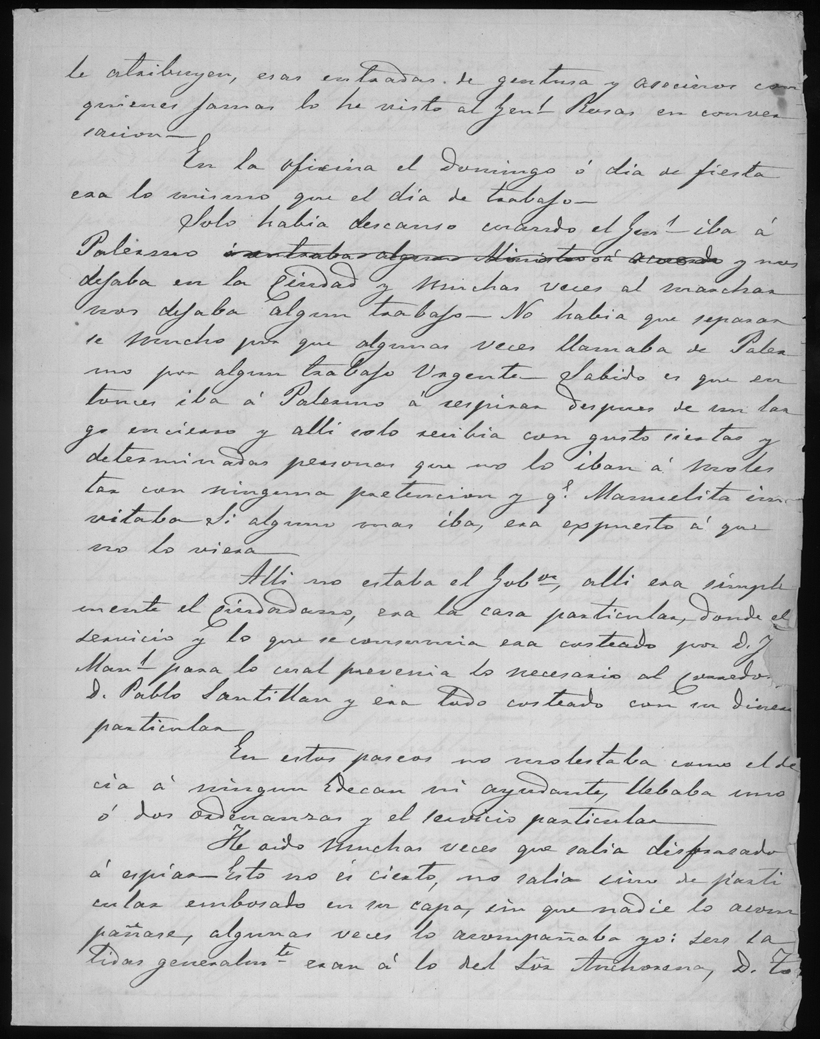 le atribuyen, esas entradas de gentusa y asecinos con
quienes jamas lo he visto al Jenl Rosas en conver
sacion—
En la oficina el domingo ó dia de fiesta
era lo mismo que el dia de trabajo—
Solo habia descanso cuando el Jenl iba á
Palermo ó entraba algunos Ministros á acuerdo y nos
dejaba en la Ciudad y muchas veces al marchar
nos dejaba algun trabajo— No habia que separar
se mucho por que algunas veces llamaba de Paler
mo por algun trabajo Urgente— Sabido es que en
tonces iba á Palermo á respirar despues de un lar
go encierro y alli solo recibia con gusto ciertas y
determinadas personas que no lo iban á moles
tar con ninguna pretencion y qe Manuelita in
vitaba Si alguno mas iba, era expuesto á que
no lo viera—
Alli no estaba el Gobor, alli era simple
mente el Ciudadano, era la casa particular, donde el
servicio y lo que se consumia era costeado por D. J
Manl para lo cual prevenia lo necesario al Corredor
D. Pablo Santillan y era todo costeado con su diner
particular
En estos paseos no molestaba como el de
cia á ningun Edecan ni ayudante, llebaba uno
ó dos ordenanzas y el servicio particular—
He oido muchas veces que salia disfrasado
á espiar— Esto no és cierto, no salia sino de parti
cular embosado en su capa, sin que nadie lo acom
pañase, algunas veces lo acompañaba yo: sus sa
lidas generalmte eran á lo del Sõr Anchorena, D. To